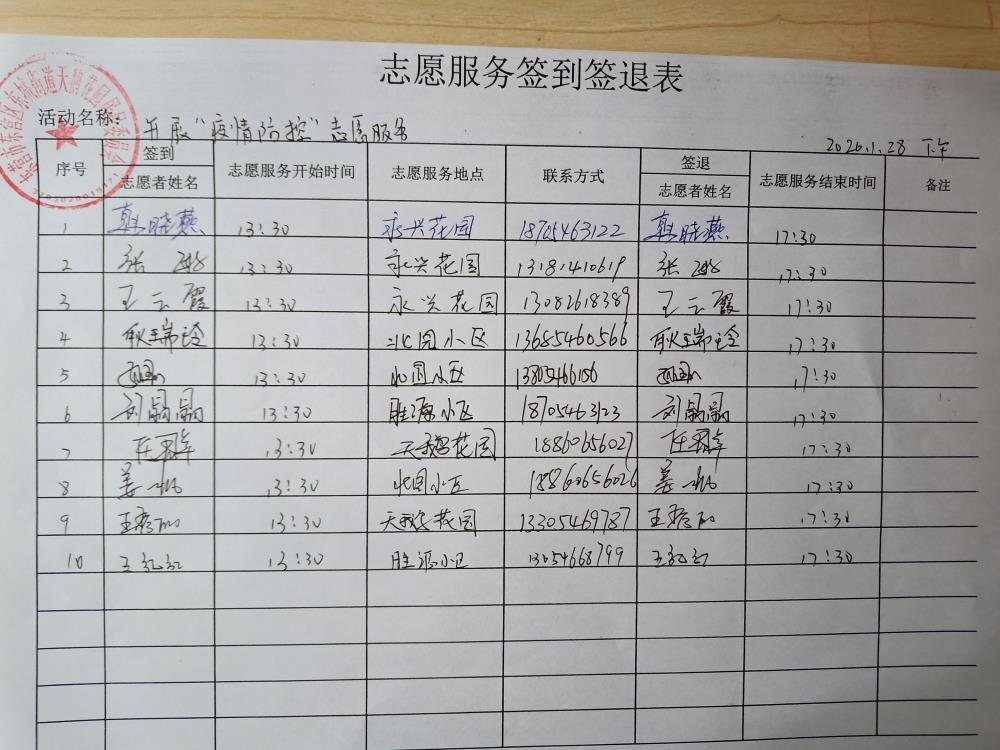 志愿服务签到签退表
活动名称: 开展"疫情防控"志愿服务
2020.1.28 下午
序号 签到 志愿者姓名 志愿服务开始时间 志愿服务地点 联系方式 签退 志愿者姓名 志愿服务结束时间 备注
1 晓燕 13:30 永兴花园 18705463122 晓燕 17:30
2 张 13:30 永兴花园 13181410619 张 17:30
3 王云霞 13:30 永兴花园 13082618389 王云霞 17:30
4 耿瑞玲 13:30 北园小区 13685460566 耿瑞玲 17:30
5 13:30 北园小区 13805466156 17:30
6 刘 13:30 胜源小区 18705463123 刘 17:30
7 13:30 天鹅花园 18860656027 17:30
8 姜 13:30 北园小区 18860656026 姜 17:30
9 王 13:30 天鹅花园 13305469787 王 17:30
10 王红红 13:30 胜源小区 13054668799 王红红 17:30